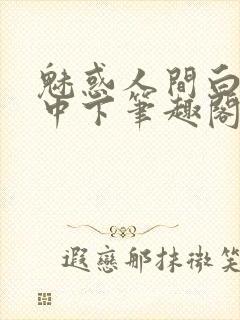 魅惑人間白
中下筆趣閣
遐戀那抹微笑